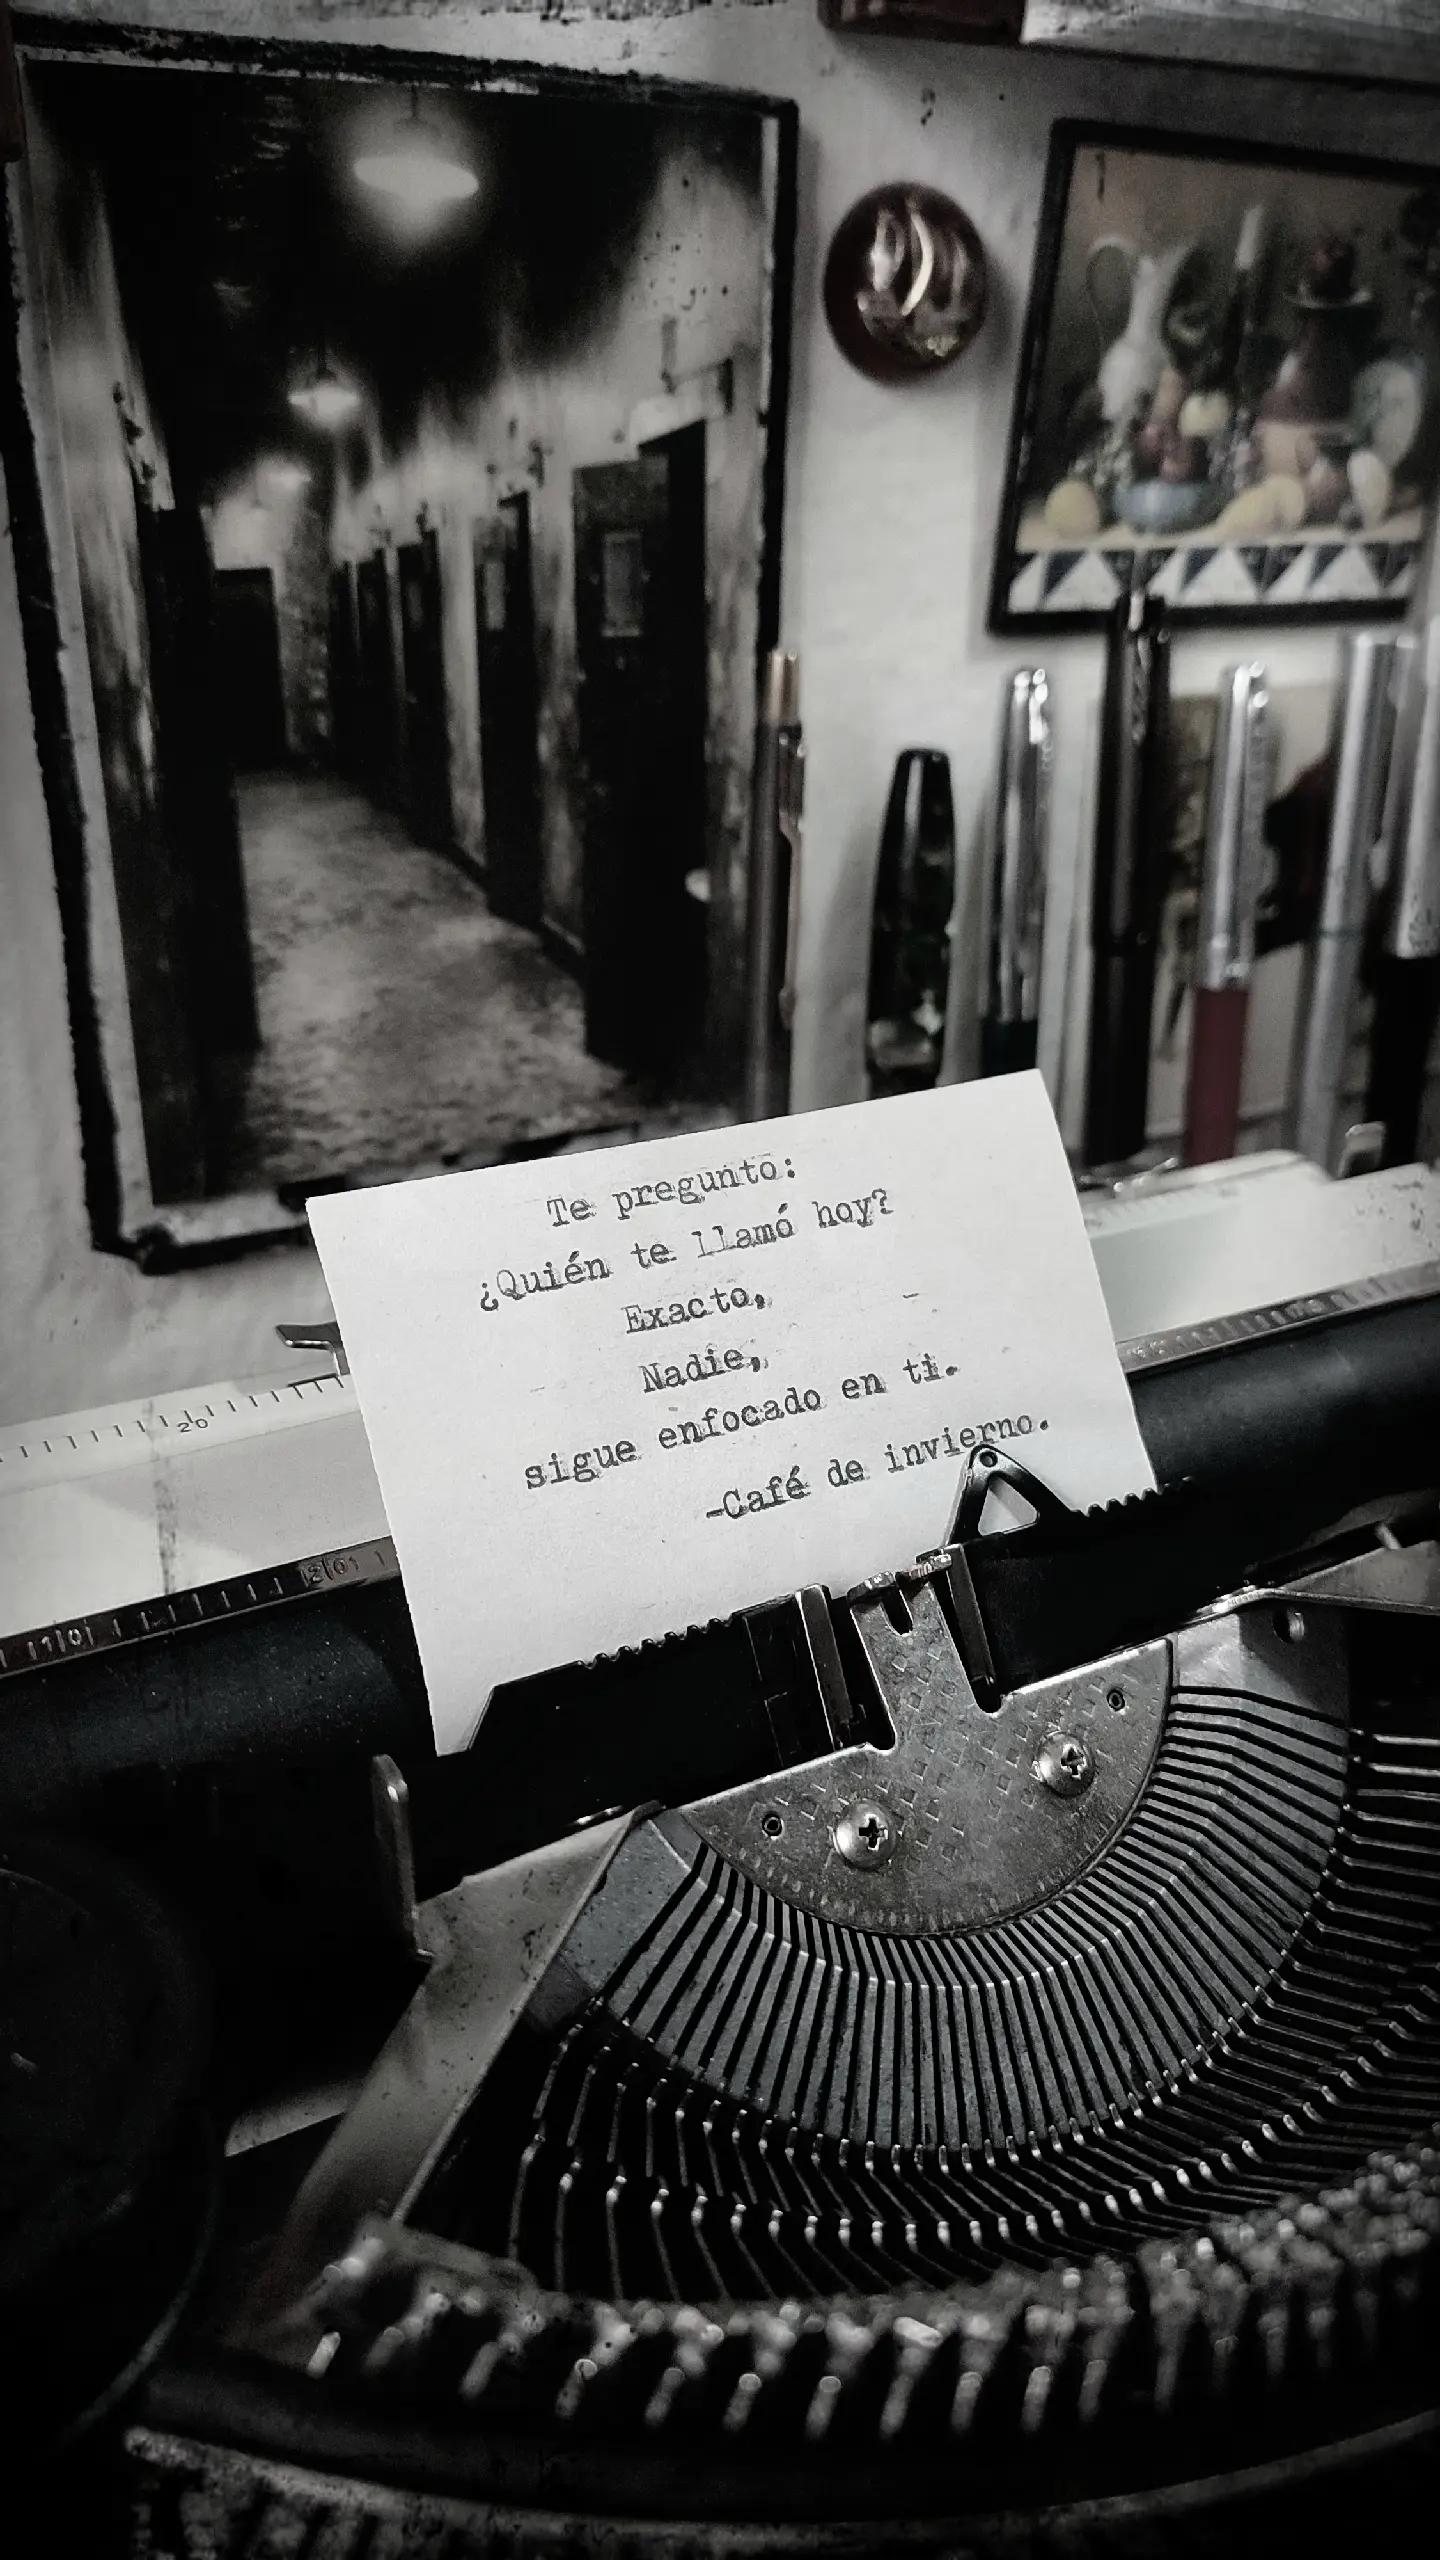 Te pregunto:
¿Quién te llamó hoy?
Exacto,
Nadie,
sigue enfocado en ti.
-Café de invierno.
20